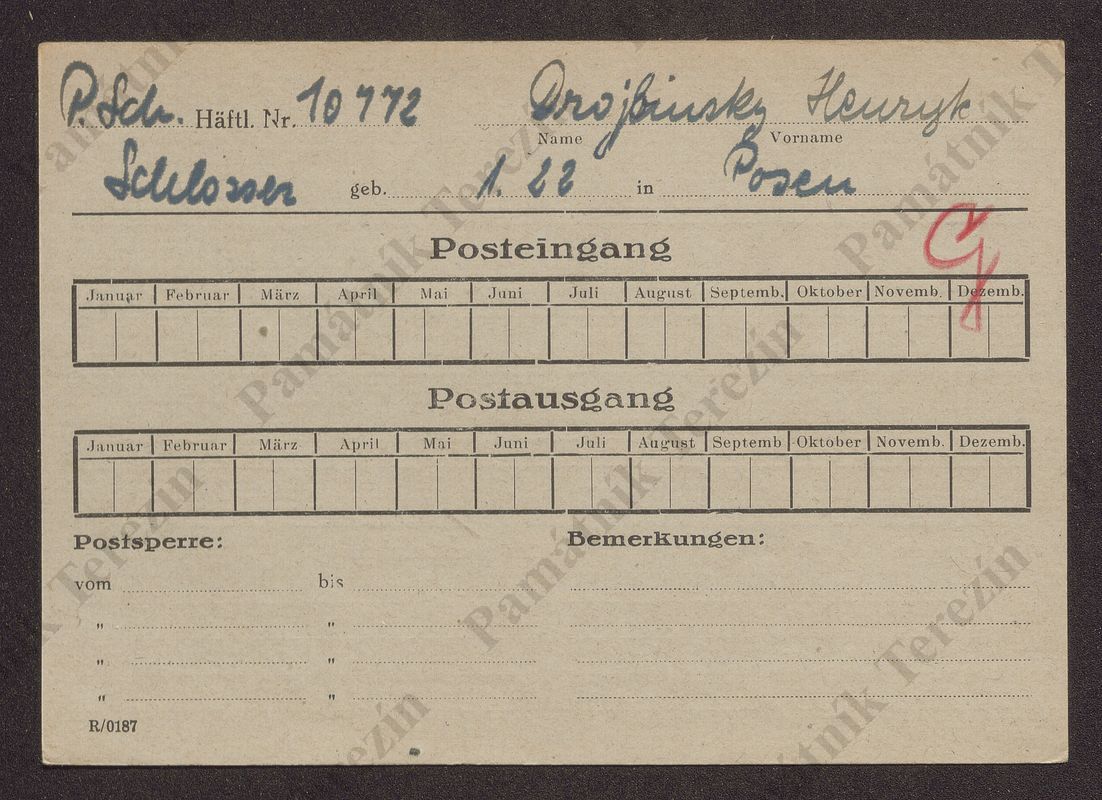 P. Sch. Häftl. Nr. 10772 Drojbinsky Henryk
Name Vorname
Schlosser geb. 1. 22 in Posen
Posteingang
Januar Februar März April Mai Juni Juli August Septemb. Oktober Novemb. Dezemb.
Postausgang
Januar Februar März April Mai Juni Juli August Septemb Oktober Novemb. Dezemb.
Postsperre: Bemerkungen:
vom bis
" "
" "
" "
R/0187
Památník Terezín